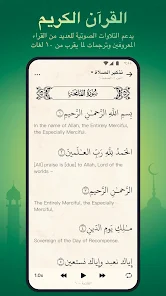 القرآن الكريم
يدعم التلاوات الصوتية للعديد من القراء
المعروفين وترجمات لما يقرب من ١٠ لغات
تذكير الصلاة
سُورَةُ الْفَاتِحَةِ
بِسْمِ اللَّهِ الرَّحْمَٰنِ الرَّحِيمِ ١
In the name of Allah, the Entirely Merciful,
the Especially Merciful.
الْحَمْدُ لِلَّهِ رَبِّ الْعَالَمِينَ ٢
[All] praise is [due] to Allah, Lord of the
worlds -
الرَّحْمَٰنِ الرَّحِيمِ ٣
The Entirely Merciful, the Especially
Merciful,
مَالِكِ يَوْمِ الدِّينِ ٤
Sovereign of the Day of Recompense.
إِيَّاكَ نَعْبُدُ وَإِيَّاكَ نَسْتَعِينُ
1.0x